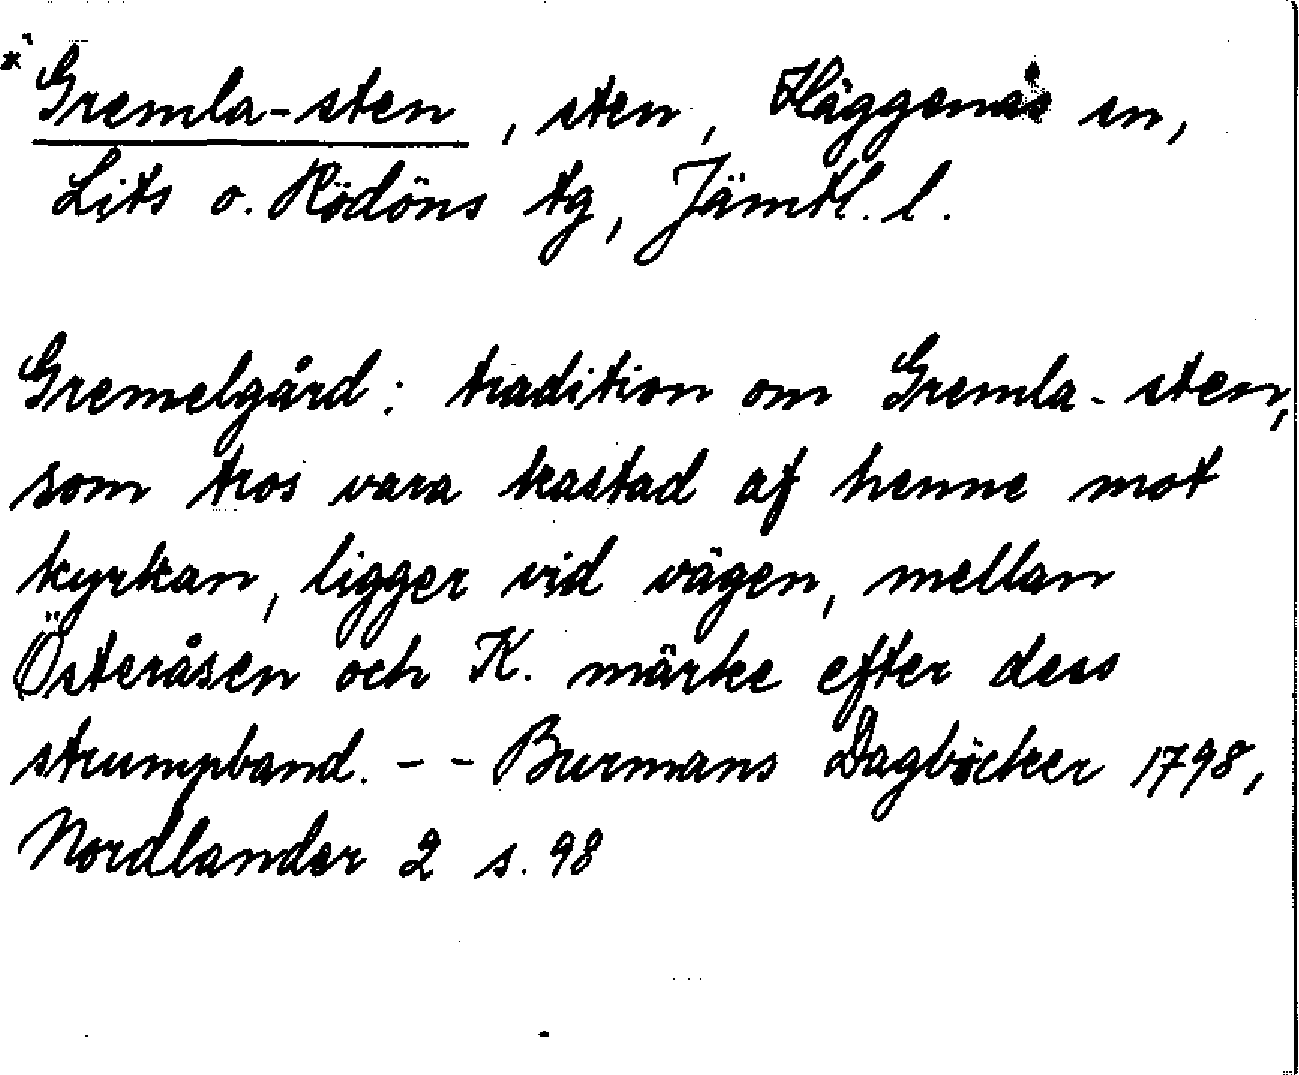 * Gremla-sten, sten, Häggenås sn,
Lits o. Rödöns tg, Jämtl. l.
Gremelgård: tradition om Gremla-sten,
som tros vara kastad af henne mot
kyrkan, ligger vid vägen, mellan
Österåsen och K. märke efter dess
strumpband. - - Burmans Dagböcker 1798,
Nordlander 2 s. 98